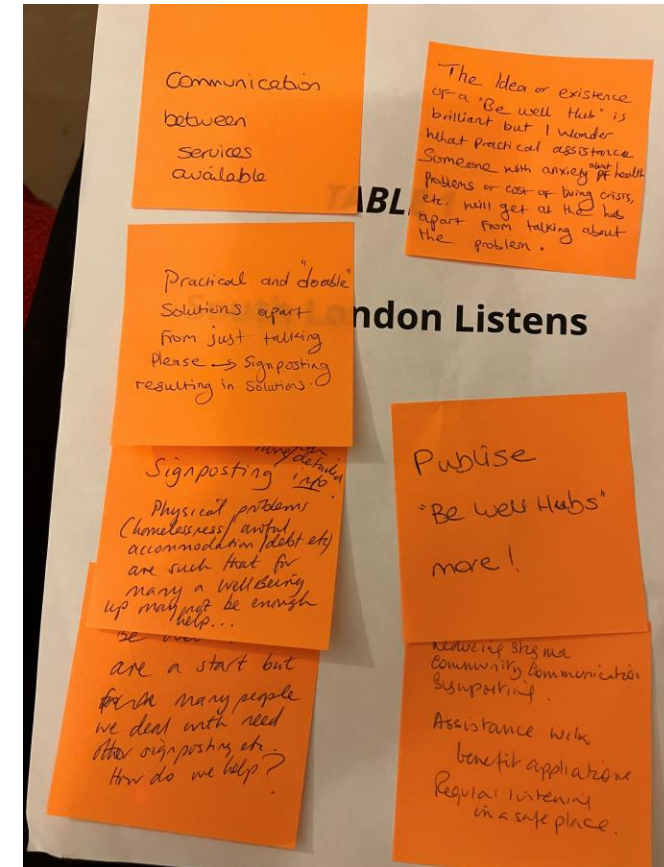 Communication
between
services
available
The Idea or existence
of a "Be well Hub" is
brilliant but I wonder
what practical assistance
Someone with anxiety about health
problems or cost of living crisis,
etc. will get at the hub
apart from talking about
the problem.
TABLE
Practical and "doable"
Solutions apart
from just talking
Please → Signposting
resulting in solutions.
South London Listens
Signposting more/detailed
info
Physical problems
(homelessness/awful
accommodation/debt etc)
are such that for
many a wellBeing
up may not be enough
help...
Publise
"Be well Hubs"
more!
Be
are a start but
many people
we deal with need
other signposting etc.
How do we help?
Reducing stigma
Community Communication
Signposting.
Assistance with
benefit applications
Regular listening
in a safe place.